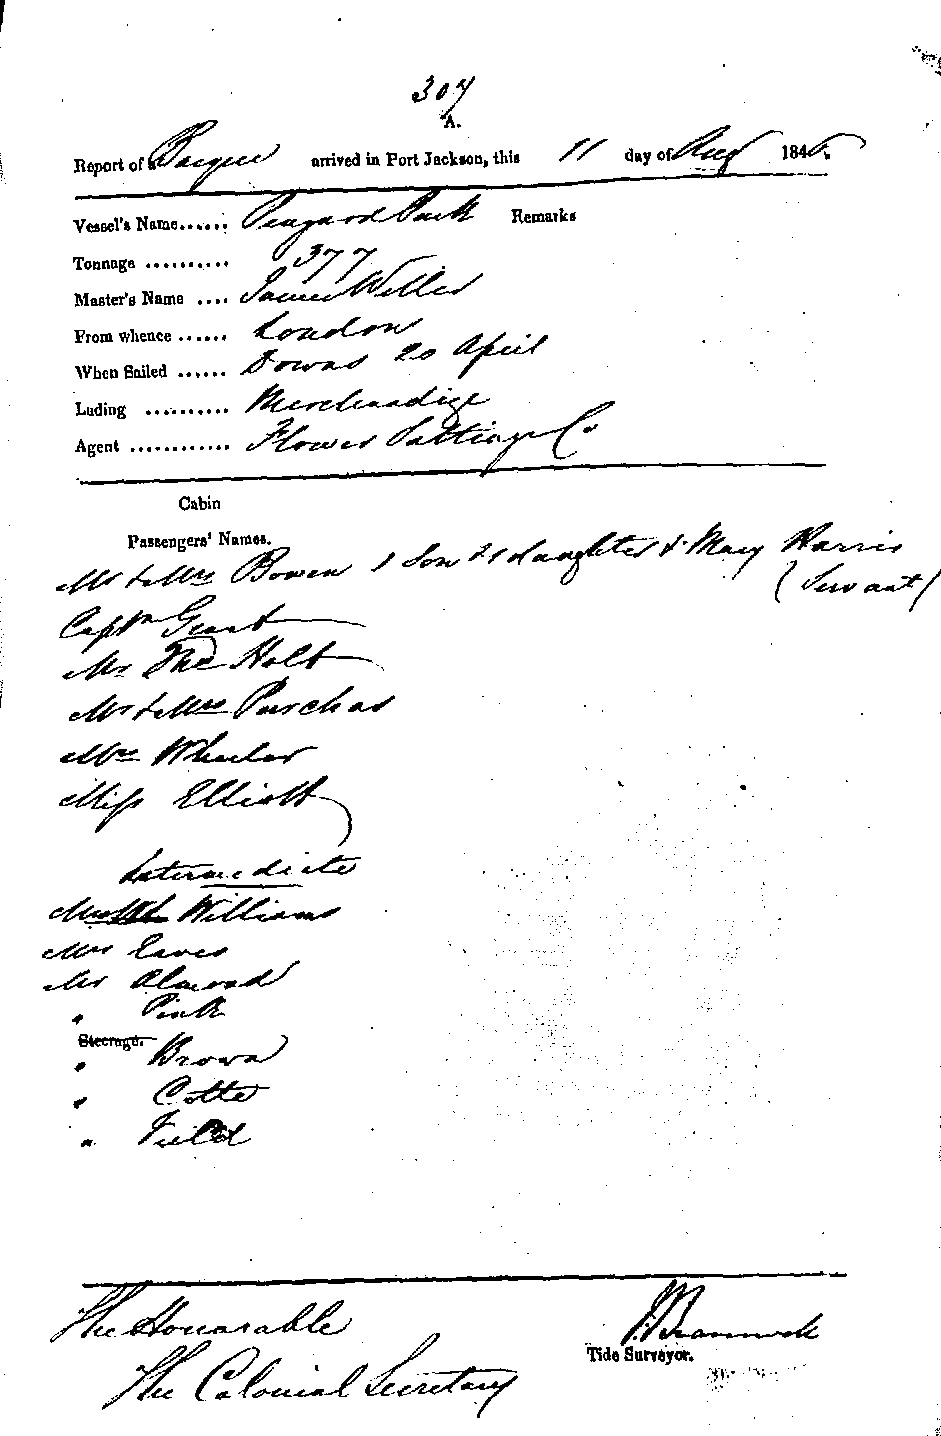 307
A.
Report of Barque arrived in Port Jackson, this 11 day of Aug 1845.
Vessel's Name...... Penyard Park Remarks
Tonnage .......... 377
Master's Name .... James Weller
From whence ...... London
When Sailed ...... Downs 20 April
Lading .......... Merchandize
Agent ............ Flower Salting & Co
Cabin
Passengers' Names.
Mr & Mrs Bowen 1 Son 2 daughters & Mary Harris
(Servant)
Captn Grant
Mr Thos Holt
Mr & Mrs Purchas
Mrs Wheeler
Miss Elliott
Intermediate
Mrs Williams
Mrs Eaves
Mr Almond
" Pink
Steerage.
" Brown
" Cotte
" Field
The Honorable
The Colonial Secretary
Tide Surveyor.